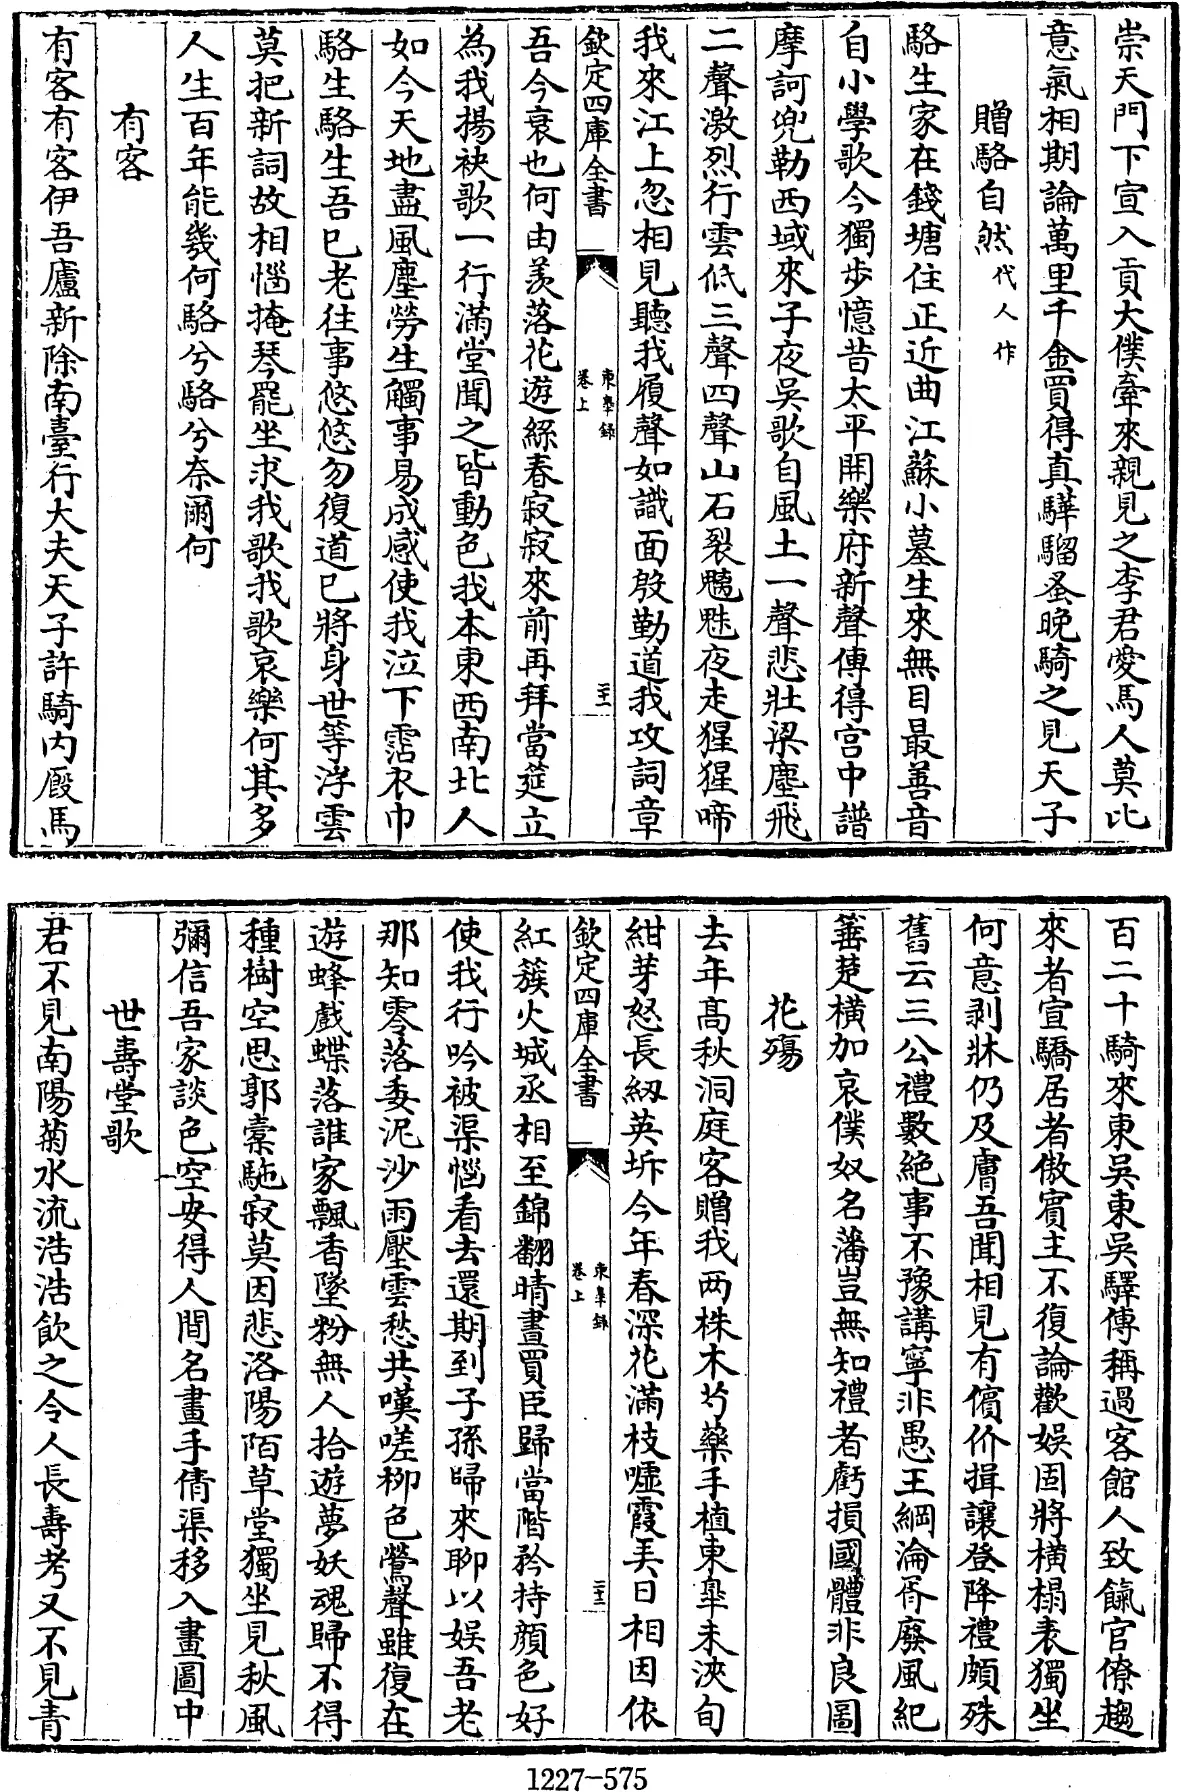 崇天門下宣入貢大僕牽來親見之李君愛馬人莫比
意氣相期論萬里千金買得真驊騮蚤晚騎之見天子
贈駱自然代人作
駱生家在錢塘住正近曲江蘇小墓生來無目最善音
自小學歌今獨步憶昔太平開樂府新聲傳得宮中譜
摩訶兜勒西域來子夜吳歌自風土一聲悲壯梁塵飛
二聲激烈行雲低三聲四聲山石裂魑魅夜走猩猩啼
我來江上忽相見聽我履聲如識面殷勤道我攻詞章
欽定四庫全書 東臯錄卷上 二十一
吾今衰也何由羨落花遊絲春寂寂來前再拜當筵立
為我揚袂歌一行滿堂聞之皆動色我本東西南北人
如今天地盡風塵勞生觸事易成感使我泣下霑衣巾
駱生駱生吾已老往事悠悠勿復道已將身世等浮雲
莫把新詞故相惱掩琴罷坐求我歌我歌哀樂何其多
人生百年能幾何駱兮駱兮奈爾何
有客
有客有客伊吾廬新除南臺行大夫天子許騎内廐馬
百二十騎來東吳東吳驛傳稱過客館人致餼官僚趨
來者宣驕居者傲賓主不復論歡娛固將橫榻表獨坐
何意剥牀仍及膚吾聞相見有儐价揖讓登降禮頗殊
舊云三公禮數絶事不豫講寧非愚王綱淪胥廢風紀
箠楚橫加哀僕奴名藩豈無知禮者虧損國體非良圖
花殤
去年髙秋洞庭客贈我两株木芍藥手植東臯未浹旬
紺芽怒長紉英坼今年春深花滿枝噓霞美日相因依
欽定四庫全書 東臯錄卷上 二十二
紅簇火城丞相至錦翻晴晝買臣歸當階矜持顔色好
使我行吟被渠惱看去還期到子孫歸來聊以娛吾老
那知零落委泥沙雨壓雲愁共嘆嗟柳色鶯聲雖復在
遊蜂戲蝶落誰家飄香墜粉無人拾遊夢妖魂歸不得
種樹空思郭橐駞寂莫因悲洛陽陌草堂獨坐見秋風
彌信吾家談色空安得人間名畫手倩渠移入畫圖中
世壽堂歌
君不見南陽菊水流浩浩飲之令人長壽考又不見青
1227-575